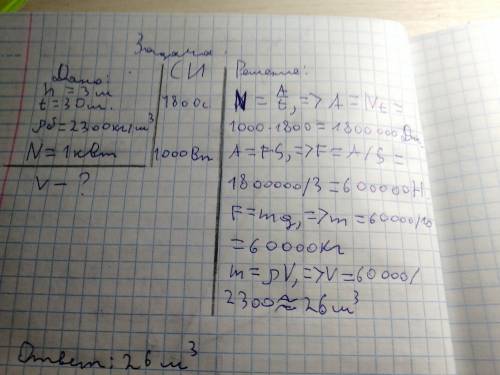 Задача.
Дано:
h = 3 м
t = 30 м.
ρб = 2300 кг/м³
N = 1 кВт
V - ?
СИ
1800с
1000Вт
Решение:
N = A/t, => A = Nt =
1000·1800 = 1800000 Дж.
A = FS, => F = A/S =
1800000/3 = 600000Н.
F = mg, => m = 60000/10
= 60000кг
m = ρV, => V = 60000/
2300 ≈ 26 м³
Ответ: 26 м³